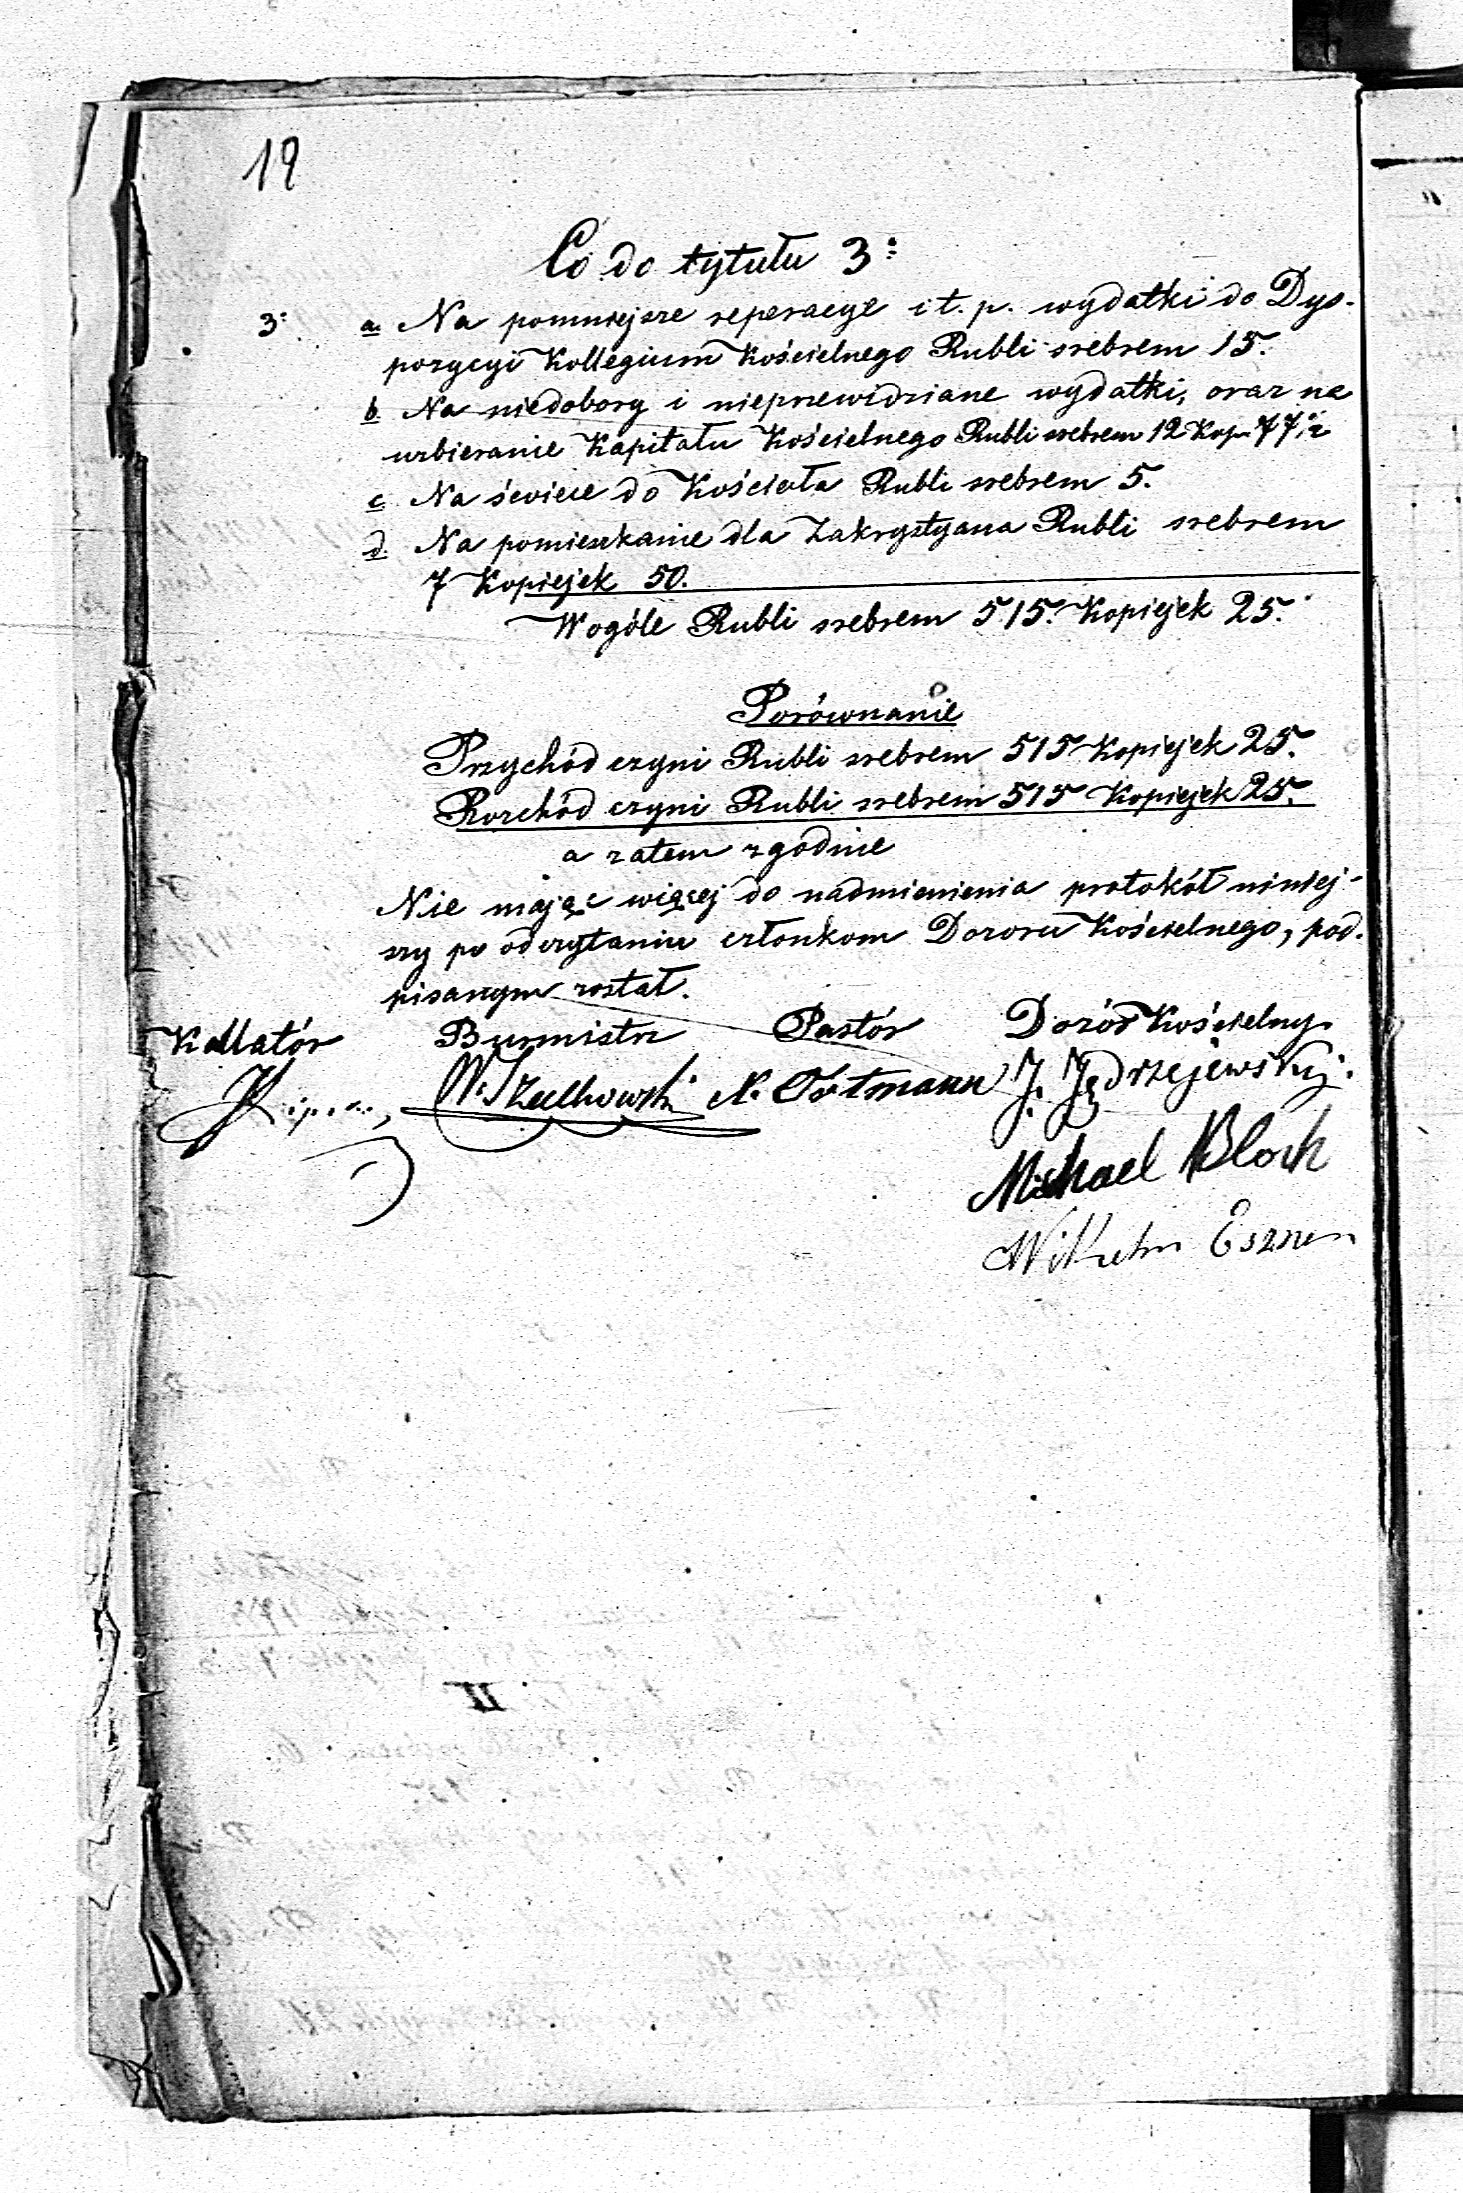 12
Co do tytułu 3:
3: a. Na pomniejsze reperacye i t. p. wydatki do Dys-
pozycyi Kollegium Kościelnego Rubli srebrem 15.
b. Na niedobory i nieprzewidziane wydatki, oraz na
uzbieranie Kapitału Kościelnego Rubli srebrem 12 Kop. 77½
c. Na świece do Kościoła Rubli srebrem 5.
d. Na pomieszkanie dla Zakrystyana Rubli srebrem
7 Kopiejek 50.
Wogóle Rubli srebrem 515. Kopiejek 25.
Porównanie
Przychód czyni Rubli srebrem 515 Kopiejek 25.
Rozchód czyni Rubli srebrem 515 Kopiejek 25.
a zatem zgodnie
Nie mając więcej do nadmienienia protokół niniej-
szy po odczytaniu członkom Dozoru Kościelnego, pod-
pisanym został.
Kollatór Burmistrz Pastór Dozór Kościelny
N. Tortmann J. Jędrzejewski.
Michael Bloch
Wilhelm
II